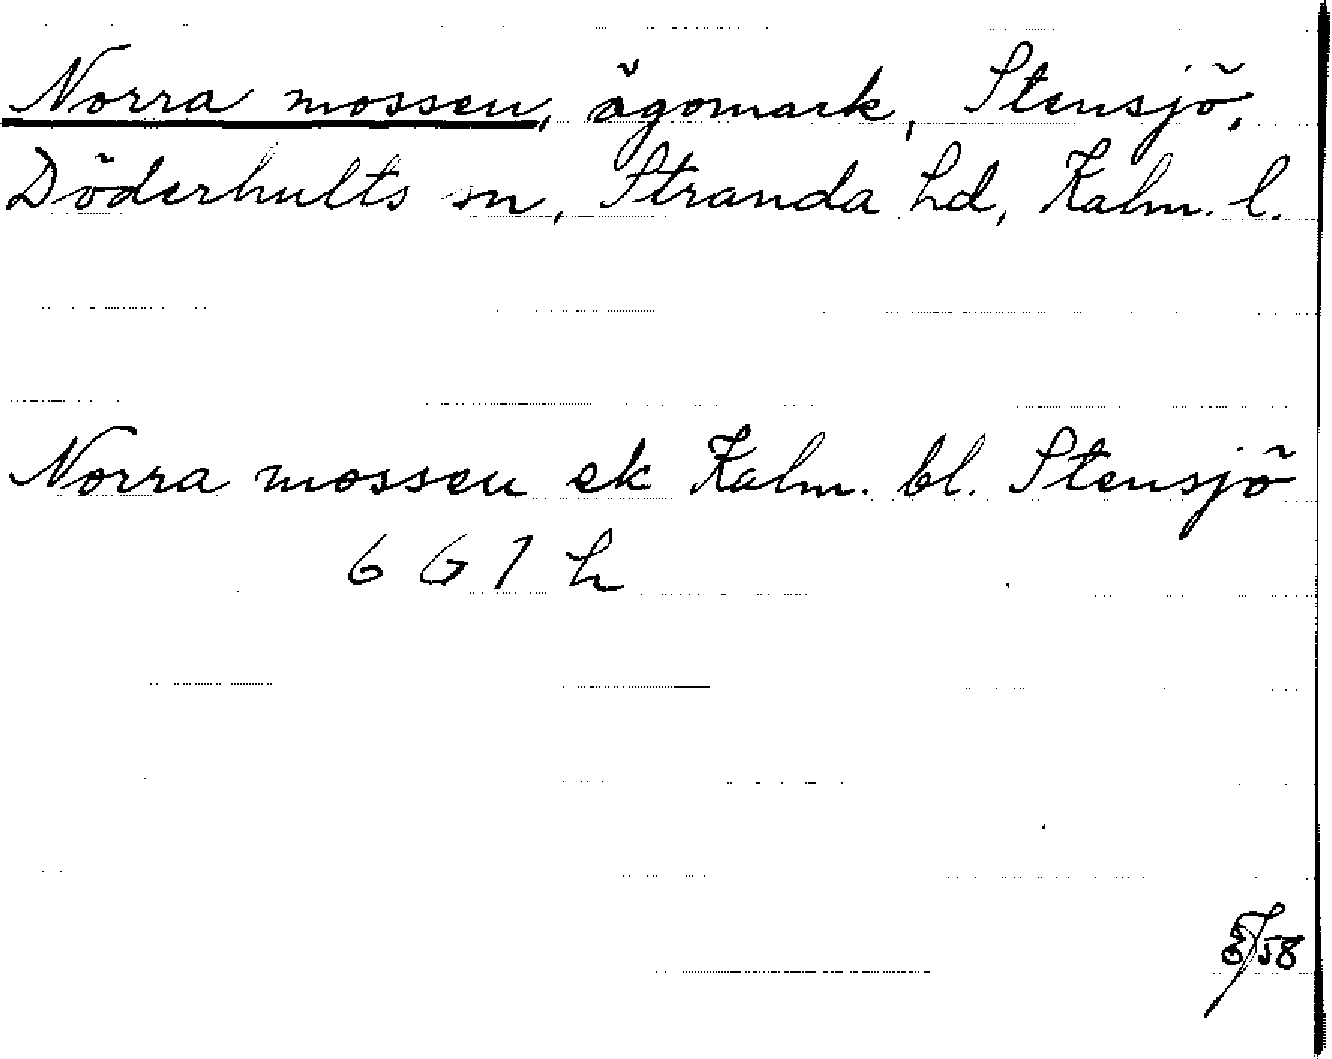 Norra mossen, ägomark, Stensjö,
Döderhults sn, Stranda hd, Kalm. l.
Norra mossen ek Kalm. bl. Stensjö
6 G 1 h